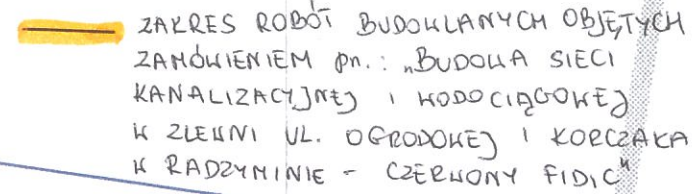 ZAKRES ROBÓT BUDOWLANYCH OBJĘTYCH
ZAMÓWIENIEM pn.: „BUDOWA SIECI
KANALIZACYJNEJ I WODOCIĄGOWEJ
W ZLEWNI UL. OGRODOWEJ I KORCZAKA
W RADZYMINIE - CZERWONY FIDIC"